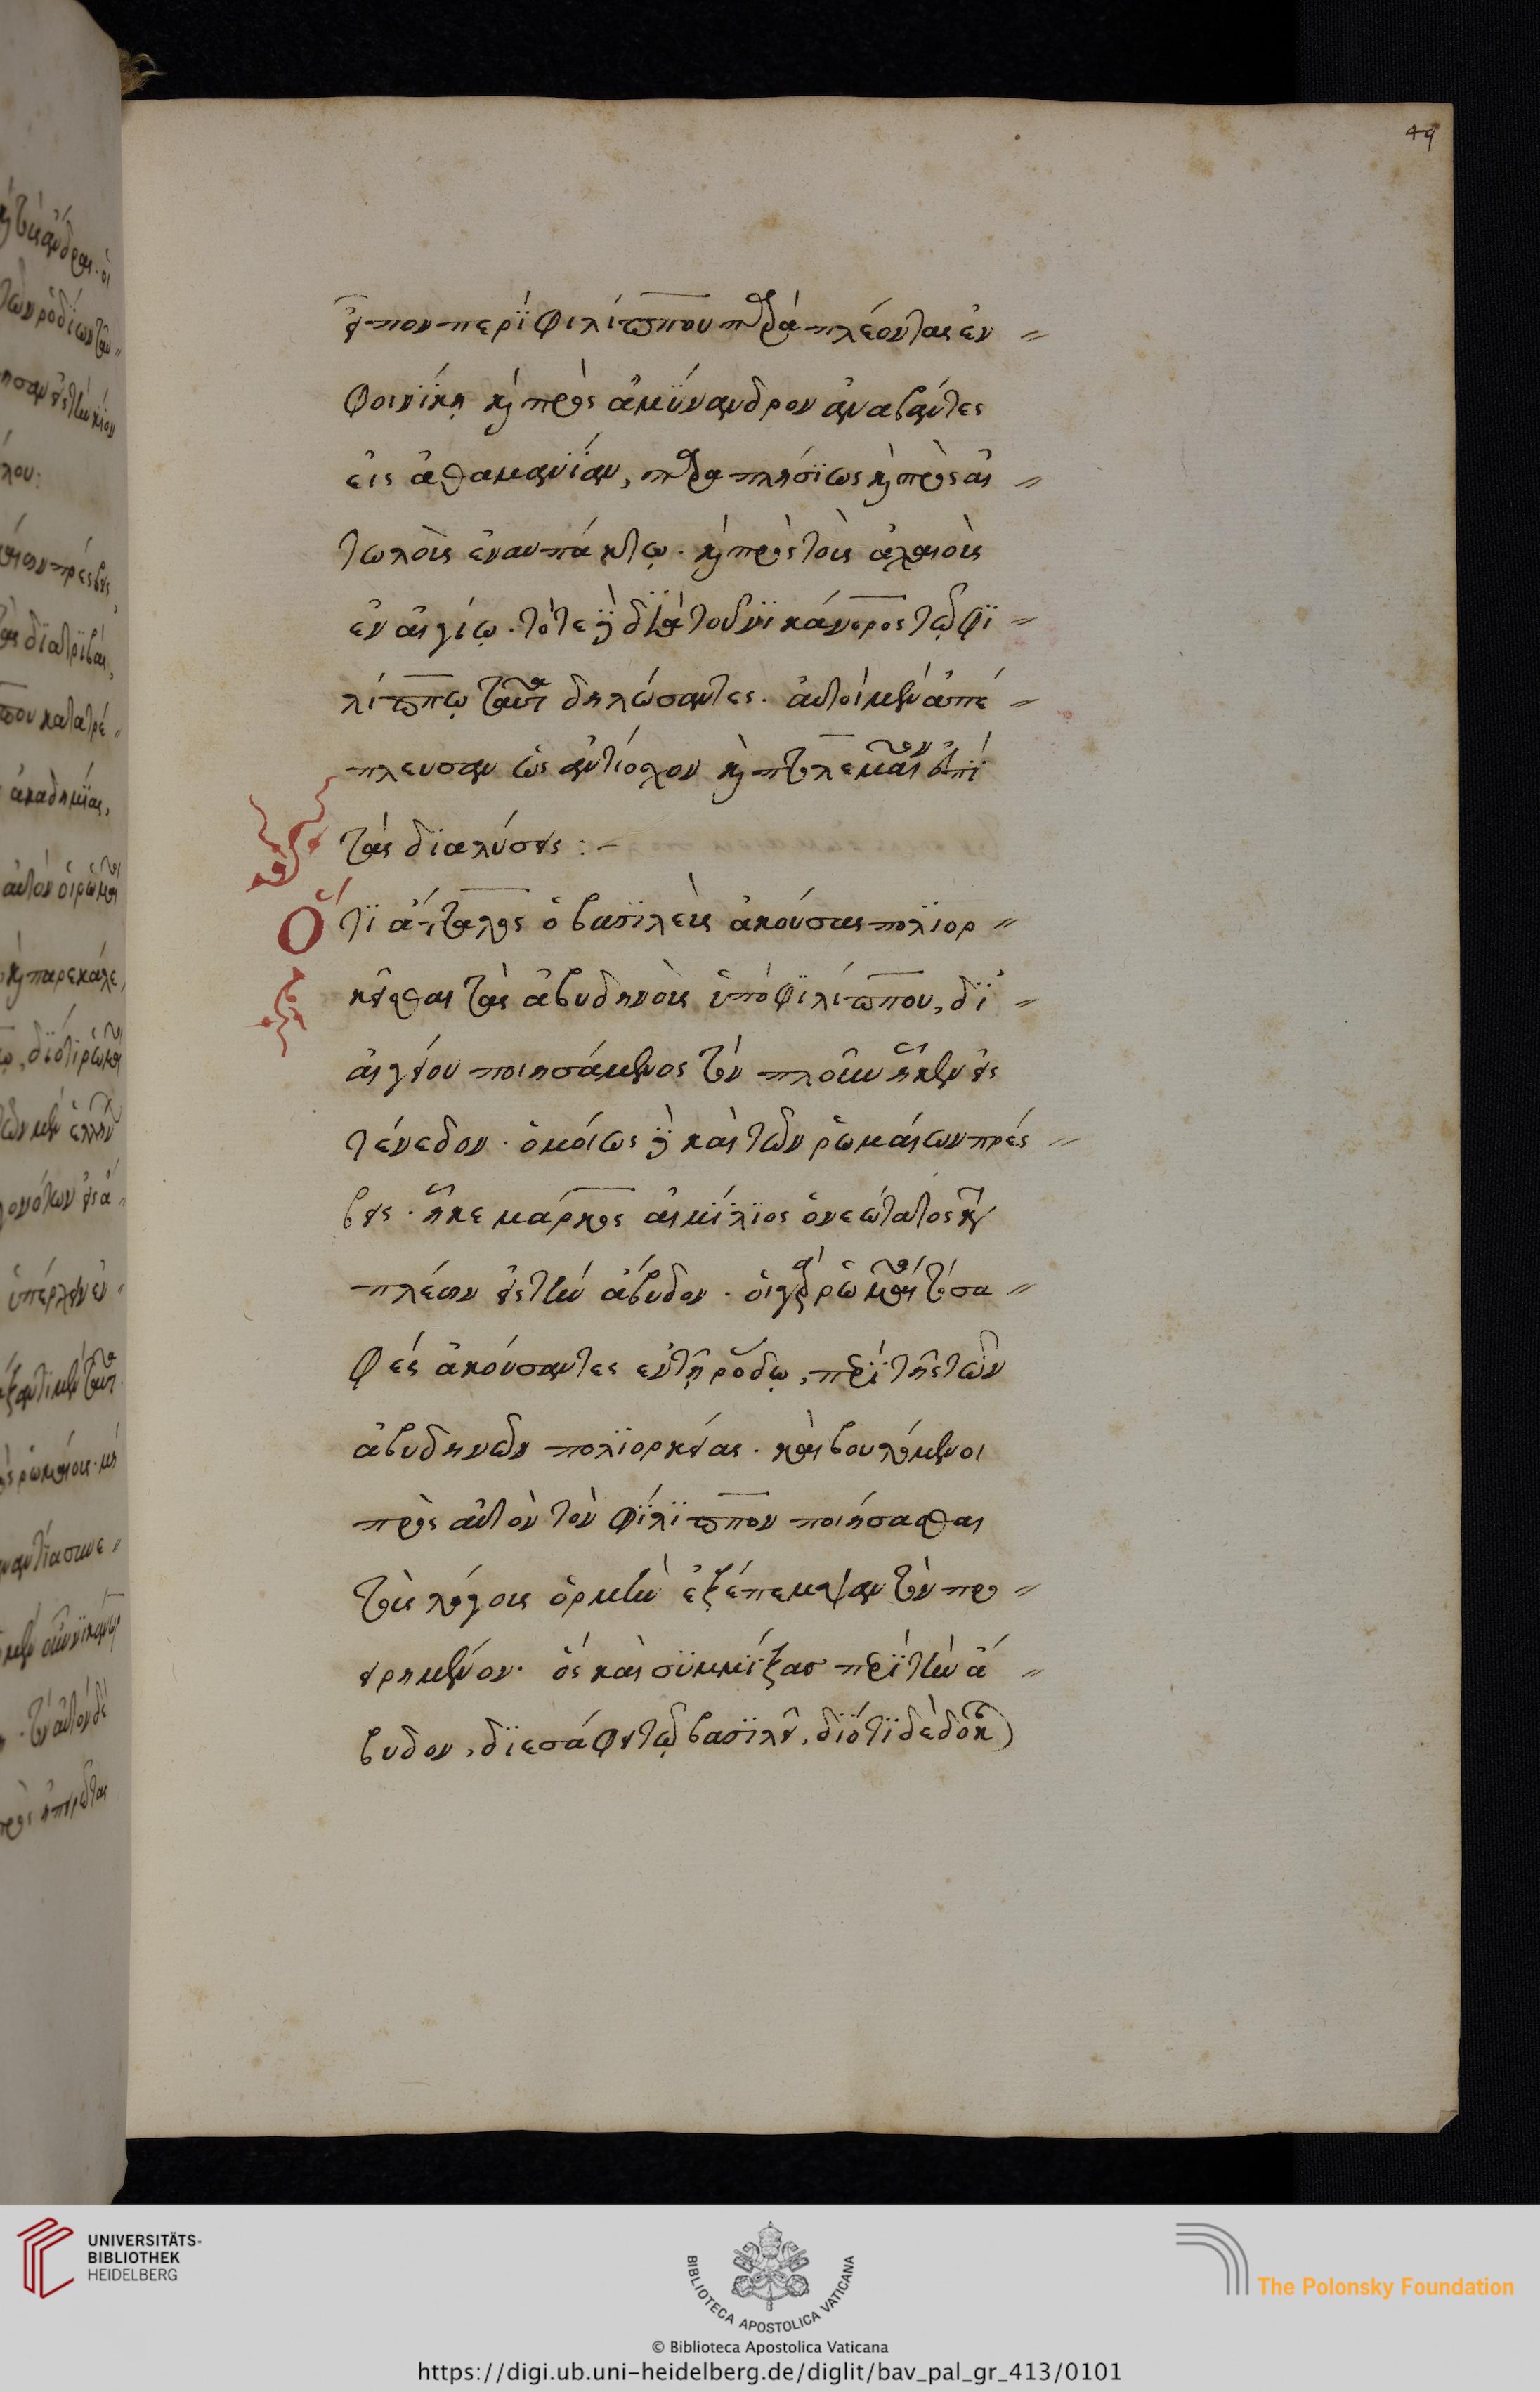 49
εἶπον περὶ Φιλίππου παραπλέοντες ἐν
Φοινίκῃ καὶ πρὸς ἀμύνανδρον ἀναβάντες
εἰς ἀθαμανίαν, παραπλησίως καὶ πρὸς αἰ
τωλοὺς ἐν αυπάκτῳ. καὶ πρὸς τοὺς ἀχαιοὺς
ἐν αἰγίῳ. τότε δὲ διὰ τοῦ νικάνορος τῷ Φι
λίππῳ ταῦτα δηλώσαντες. αὐτοὶ μὲν ἀπέ
πλευσαν ὡς ἀντίοχον καὶ πτολεμαῖον ἐπὶ
τὰς διαλύσεις :-
Ὅτι ἄτταλος ὁ βασιλεὺς ἀκούσας πολιορ
κεῖσθαι τὰς ἀβυδηνοὺς ὑπὸ Φιλίππου, δι
αἰγείου ποιησάμενος τὸν πλοῦν ἧκεν εἰς
τένεδον. ὁμοίως δὲ καὶ τῶν ῥωμαίων πρέσ
βεις. ἧκε μάρκος αἰμίλιος ὁ νεώτατος
πλέων εἰς τὴν ἄβυδον. οἱ γὰρ ῥωμαῖοι τὸ σα
Φὲς ἀκούσαντες ἐν τῇ ῥόδῳ, περὶ τῆς τῶν
ἀβυδηνῶν πολιορκείας. καὶ βουλόμενοι
πρὸς αὐτὸν τὸν Φίλιππον ποιήσασθαι
τοὺς λόγους ὁρμὴν ἐξέπεμψαν τὸν προ
ειρημένον. ὃς καὶ συμμίξας περὶ τὴν ἄ
βυδον, διεσάφει τῷ βασιλεῖ, διότι δέδοκται
UNIVERSITÄTS-
BIBLIOTHEK
HEIDELBERG
BIBLIOTECA APOSTOLICA VATICANA
The Polonsky Foundation
© Biblioteca Apostolica Vaticana
https://digi.ub.uni-heidelberg.de/diglit/bav_pal_gr_413/0101